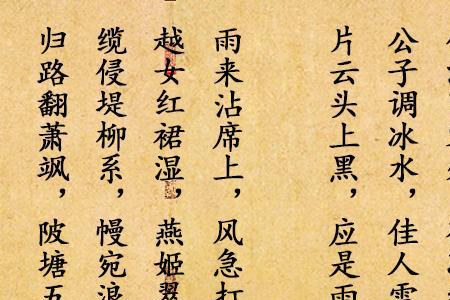 公子调冰水，佳人雪
片云头上黑，应是雨
雨来沾席上，风急打
越女红裙湿，燕姬翠
缆侵堤柳系，幔宛浪
归路翻萧飒，陂塘五